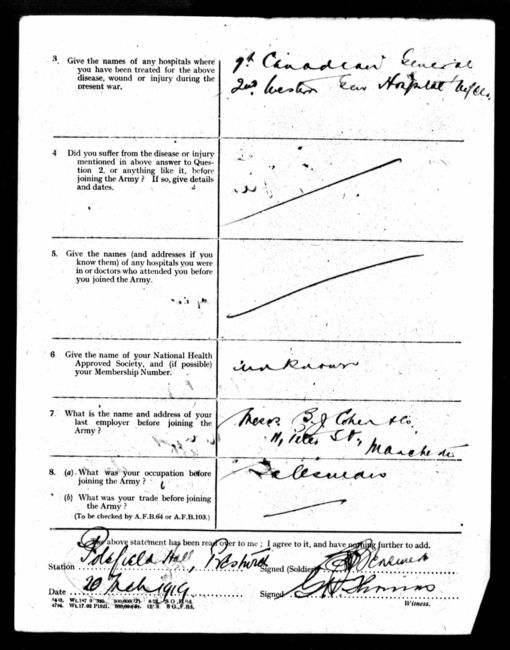 3. Give the names of any hospitals where
you have been treated for the above
disease, wound or injury during the
present war.
9th Canadian General
2nd Western Gen Hospital
4 Did you suffer from the disease or injury
mentioned in above answer to Ques-
tion 2, or anything like it, before
joining the Army? If so, give details
and dates.
5. Give the names (and addresses if you
know them) of any hospitals you were
in or doctors who attended you before
you joined the Army.
6 Give the name of your National Health
Approved Society, and (if possible)
your Membership Number.
unknown
7. What is the name and address of your
last employer before joining the
Army?
Messrs B.J Cohen & Co.
St, Manchester
8. (a) What was your occupation before
joining the Army?
Salesman
(b) What was your trade before joining
the Army?
(To be checked by A.F.B.64 or A.F.B.103.)
The above statement has been read over to me; I agree to it, and have nothing further to add.
Station Hall, Prestwich Signed (Soldier)
Date 20 Feb 1919 Signed G H Thomas
Witness.